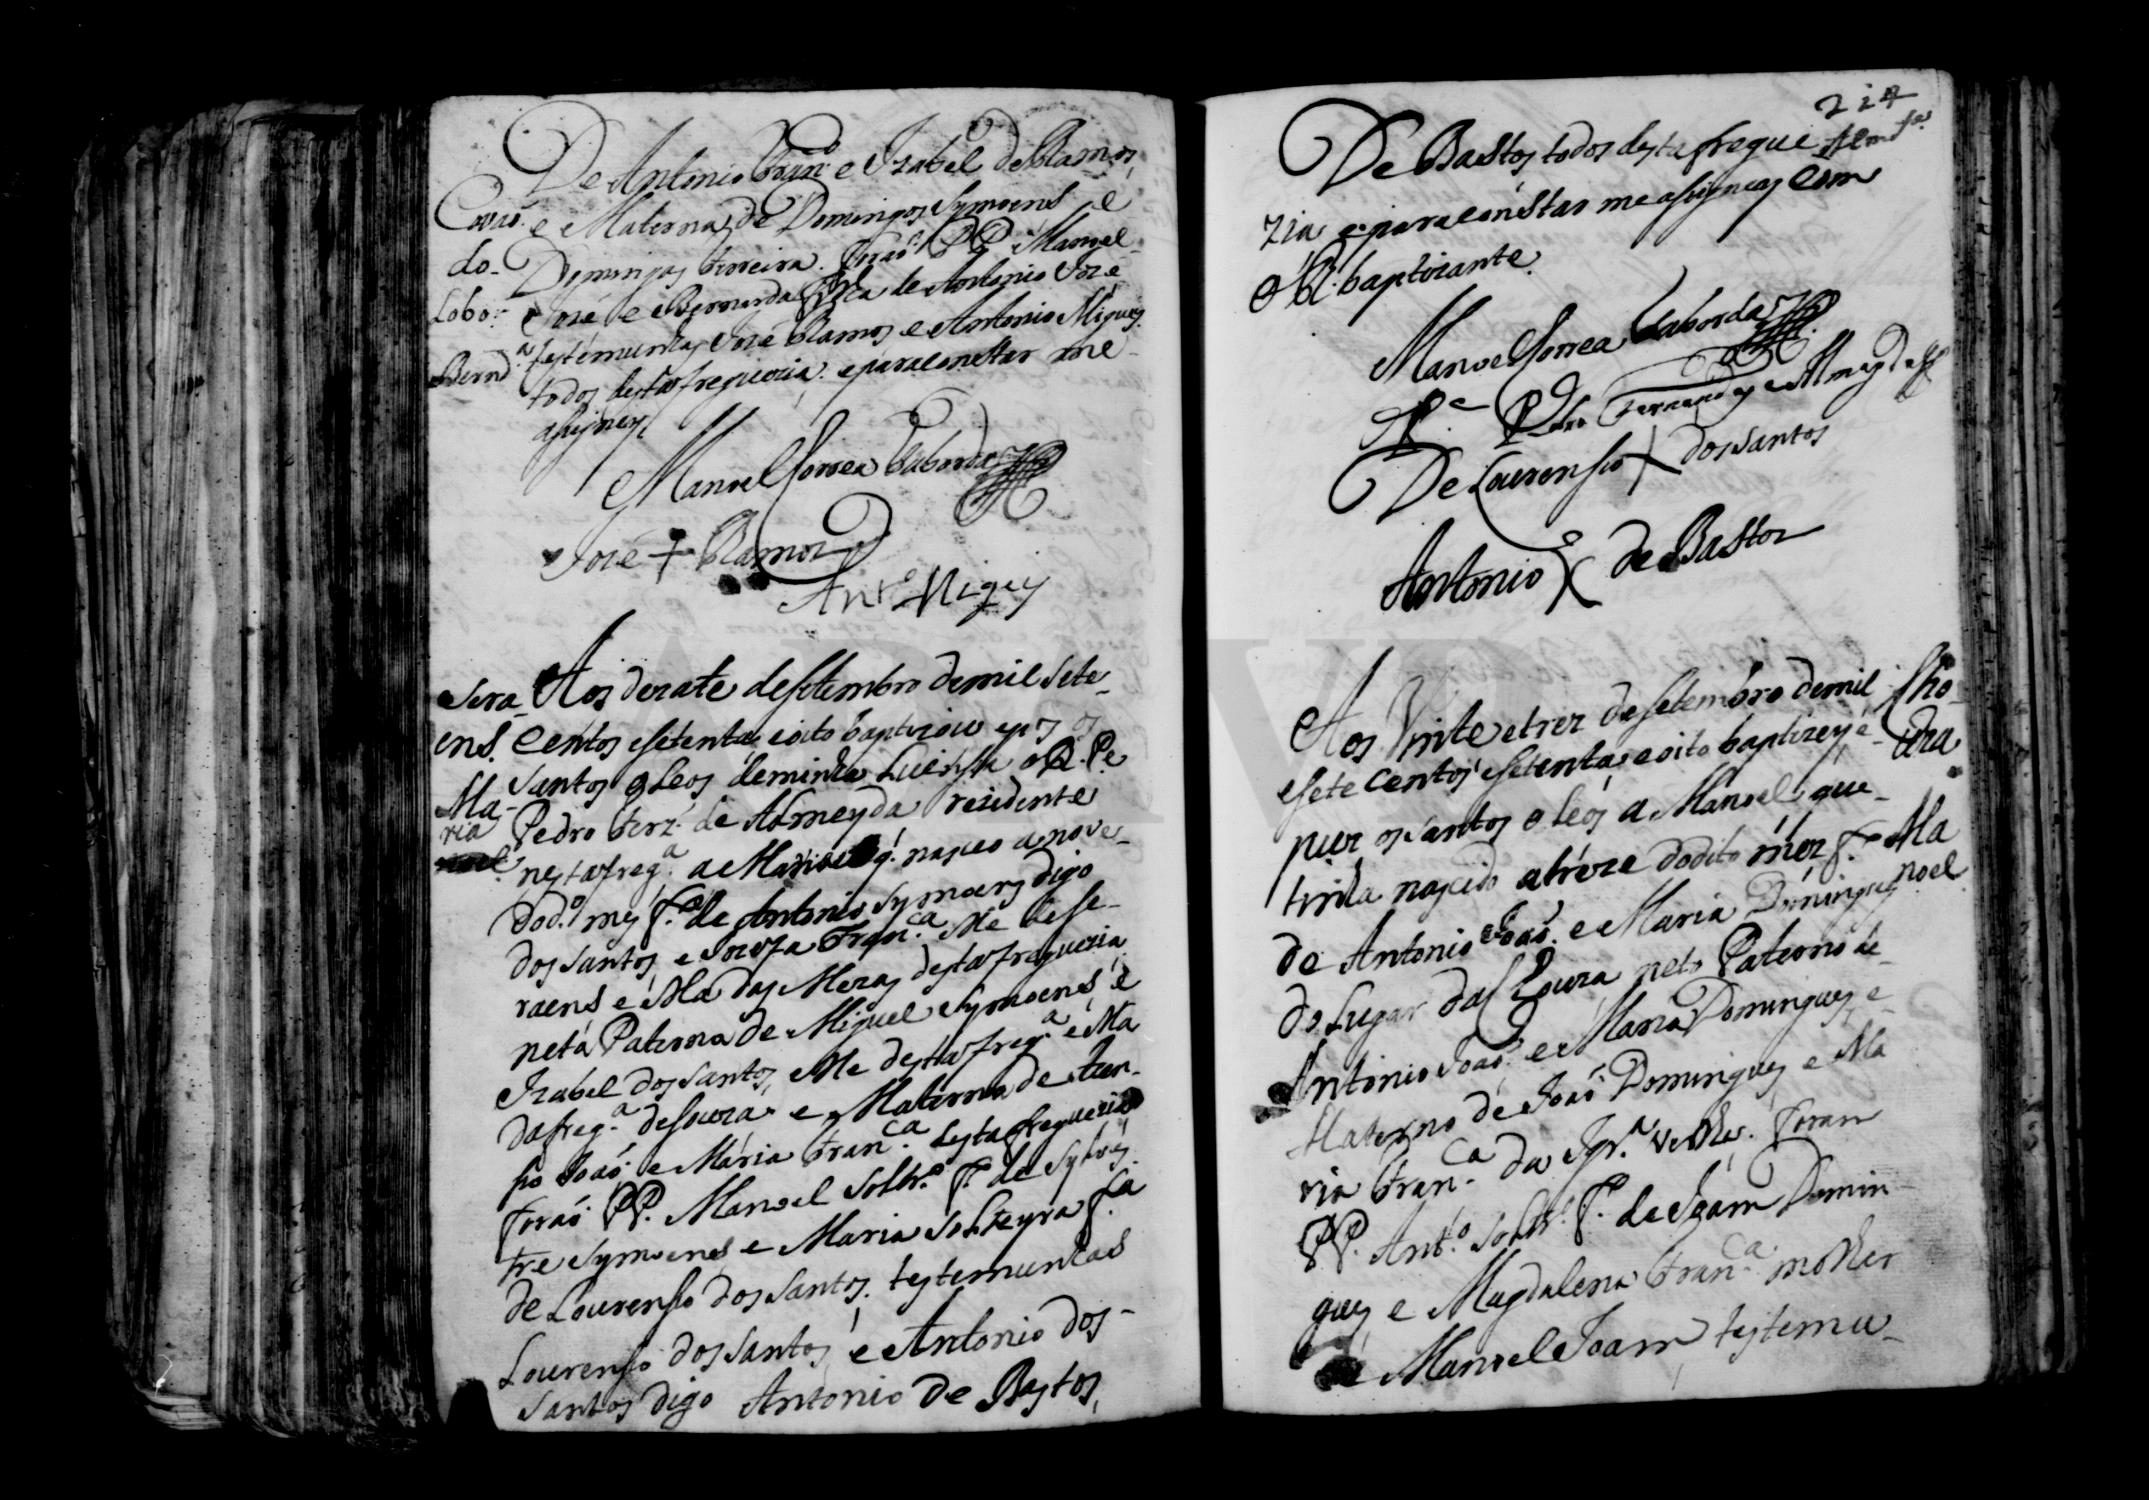 De Antonio Fran.co e Izabel de Ramos
e Materna de Domingos Symoens e
Domingas Ferreira. Forão PP. Manoel
José e Bernarda f.ª de Antonio José
testemunhas José Ramos e Antonio Migueis
todos desta freguezia. e para constar me
asigney
Covão
do
Lobo
Bern.da
Manoel Correa Taborda
José + Ramos
Ant.o Migueis
Sera-
ens.
Ma-
ria
Aos dezasete de setembro de mil sete-
centos e setenta e oito baptizou e pos os
santos oleos de minha Licensa o R. P.e
Pedro Ferz. de Almeyda rezidente
nesta freg.a a Maria q. nasceo a nove
do d.o mes f.a de Antonio Symoens digo
dos Santos e Jozefa Fran.ca Me de Se-
raens e Ma das Mezas desta freguezia
neta Paterna de Miguel Symoens e
Izabel dos Santos, elle desta freg.a e Ma
da freg.a de Souza e Materna de Afon-
so João e Maria Fran.ca desta freguezia
forão PP. Manoel Soltr.o f.o de Sylves-
tre Symoens e Maria Solteyra f.a
de Lourenso dos Santos. testemunhas
Lourenso dos Santos e Antonio dos-
Santos digo Antonio de Bastos,
214
De Bastos todos desta fregue
zia e para constar me asigney com
o R. baptizante.
Manoel Correa Taborda
P.e Pedro Fernandes e Almeyda
De Lourenso + dos Santos
Antonio + de Bastos
Aos Vinte e trez de setembro de mil
e sete centos e setenta e oito baptizey e
puz os santos oleos a Manoel que
tinha nascido a treze do dito mez f.o
de Antonio João e Maria Domingues
do Lugar da Choura neto Paterno de
Antonio João e Maria Domingues e
Materno de João Domingues e Ma
ria Fran.ca da Igr.a Velha. foram
PP. Ant.o Soltr.o f.o de Joam Domin
gues e Magdalena Fran.ca molher
de Manoel Joam testemu-
Cho-
uza
Ma
noel